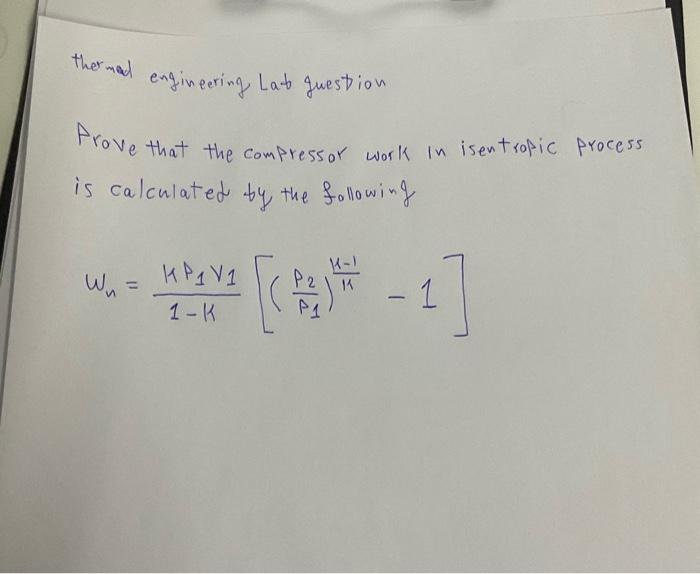 thermal engineering Lab question
Prove that the compressor work in isentropic process
is calculated by the following
Wn = KP1V1 / 1-K [(P2/P1)^(K-1/K) - 1]